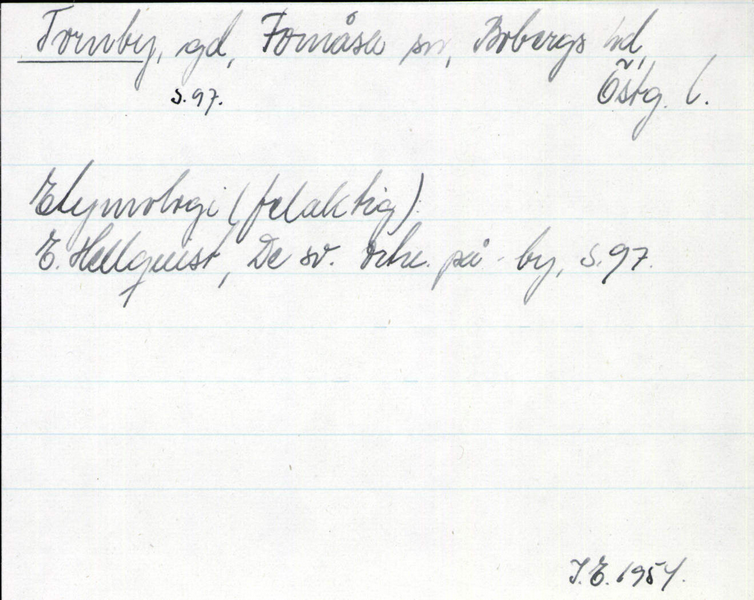 Tornby, gd, Fornåsa sn, Bobergs hd,
Östg. l.
s. 97.
Etymologi (felaktig)
E. Hellquist, De sv. ortn. på -by, s. 97.
J.E. 1954.